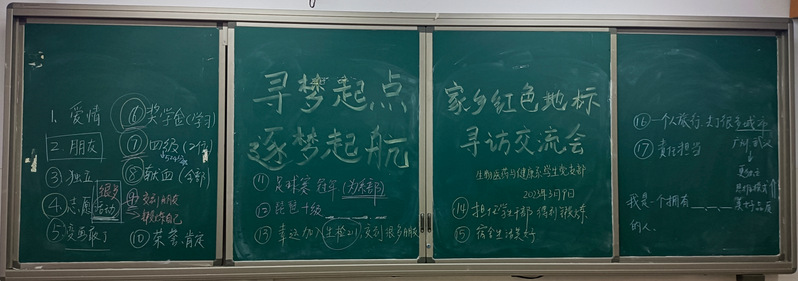 寻梦起点
逐梦起航
家乡红色地标
寻访交流会
生物医药与健康系学生党支部
2023年3月9日
1. 爱情
2. 朋友
3 独立
4 志愿活动
很多
5 变
6 奖学金(学习)
7 四级(2位)
8 献血(全部)
9 交到朋友
锻炼自己
10 荣誉、肯定
11 足球赛 冠军 (为系部)
12 琵琶十级
13 幸运加入(生检211),交到很多朋友
14 担任学生干部 得到锻炼
15 宿舍生活美好
16 一个人旅行,去了很多城市
广州 武汉
17 责任担当
更独立
思维模式
美好品质
我是一个拥有__、__、__
的人.